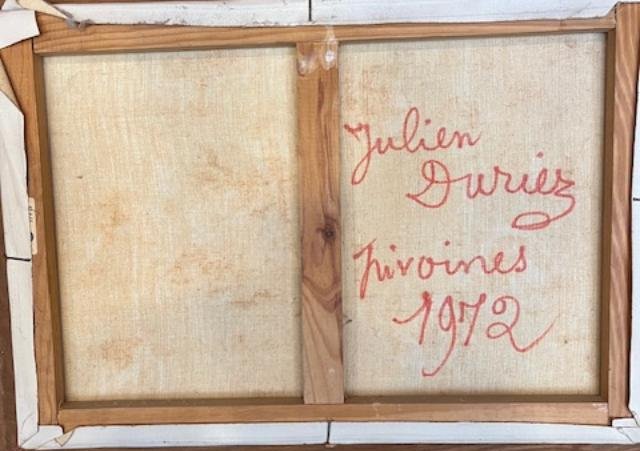 Julien
Duriez
pivoines
1972